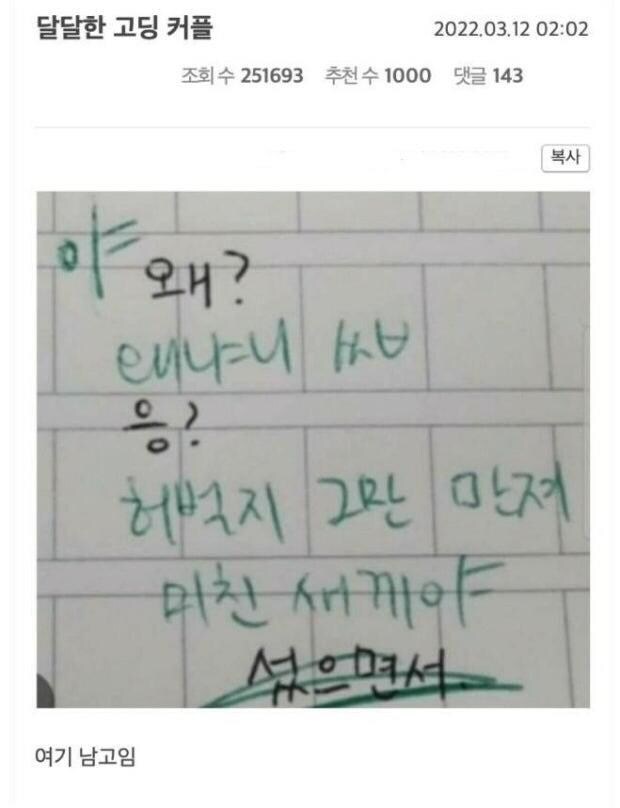 달달한 고딩 커플
2022.03.12 02:02
조회 수 251693 추천 수 1000 댓글 143
복사
야
왜?
왜냐니 ㅆㅂ
응?
허벅지 그만 만져
미친 새끼야
섰으면서.
여기 남고임